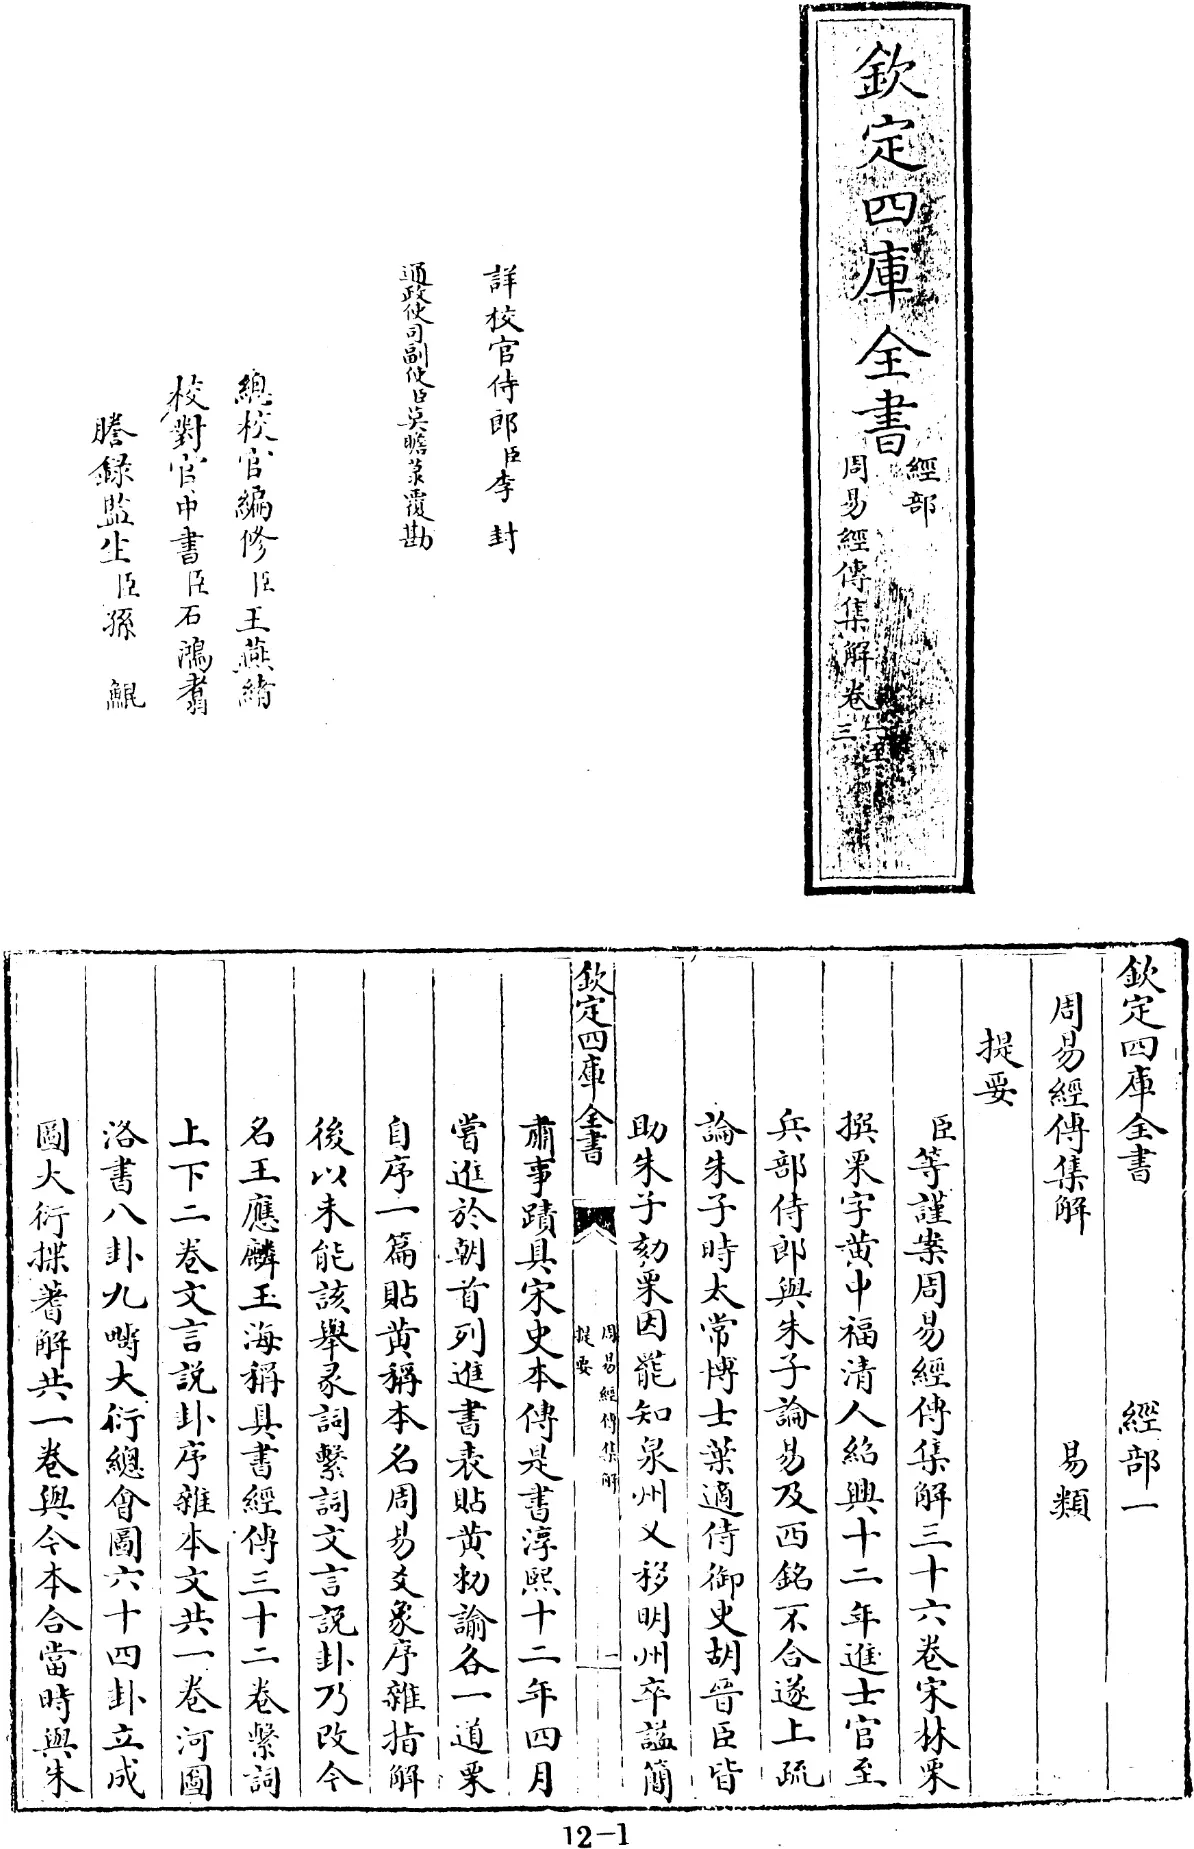 欽定四庫全書
經部
周易經傳集解卷一至
三
詳校官侍郎臣李封
通政使司副使臣莫瞻菉覆勘
總校官編修臣王燕緒
校對官中書臣石鴻翥
謄錄監生臣孫鯤
欽定四庫全書 經部一
周易經傳集解 易類
提要
臣等謹案周易經傳集解三十六卷宋林栗
撰栗字黃中福清人紹興十二年進士官至
兵部侍郎與朱子論易及西銘不合遂上疏
論朱子時太常博士葉適侍御史胡晉臣皆
助朱子劾栗因罷知泉州又移明州卒諡簡
欽定四庫全書
周易經傳集解
提要
一
肅事蹟具宋史本傳是書淳熙十二年四月
嘗進於朝首列進書表貼黃敕諭各一道栗
自序一篇貼黃稱本名周易爻象序雜指解
後以未能該舉彖詞繫詞文言說卦乃改今
名王應麟玉海稱其書經傳三十二卷繫詞
上下二卷文言說卦序雜本文共一卷河圖
洛書八卦九疇大衍總會圖六十四卦立成
圖大衍揲蓍解共一卷與今本合當時與朱
12-1